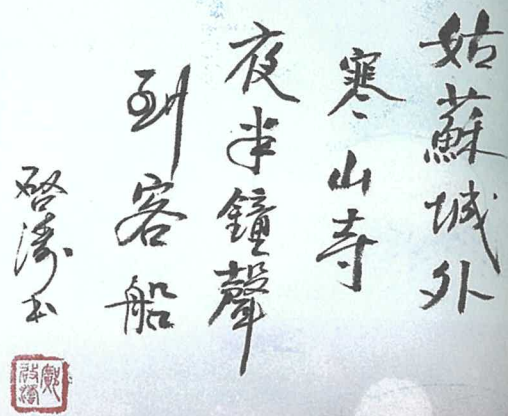 姑蘇城外
寒山寺
夜半鐘聲
到客船
啓濤书